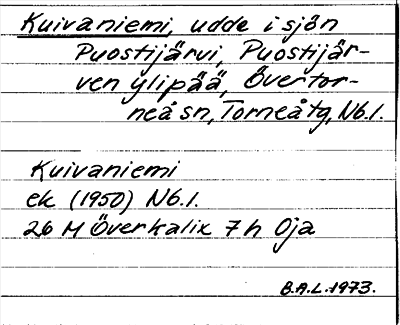 Kuivaniemi, udde i sjön
Puostijärvi, Puostijär-
ven ylipää, Övertor-
neå sn, Torneå tg, Nb.l.
Kuivaniemi
ek (1950) Nb.l.
26 M Överkalix 7h Oja
B.A.L. 1973.